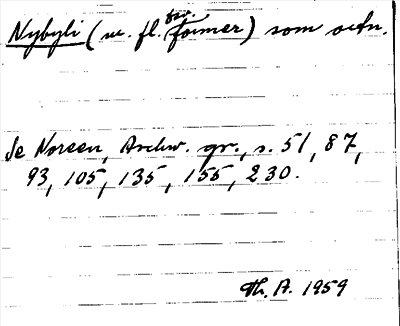 Nybyli (m. fl. sv. former) som ortn.
Se Noreen, Archiv. gr., s. 51, 87,
93, 105, 135, 155, 230.
Th. A. 1959